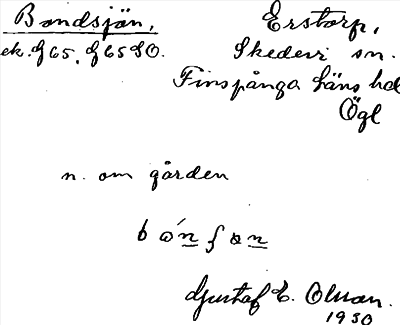 Bondsjön,
ek. G65, G65SO.
Erstorp,
Skedevi sn.
Finspånga läns hd
Ögl
n. om gården
Gustaf E. Olsson.
1930